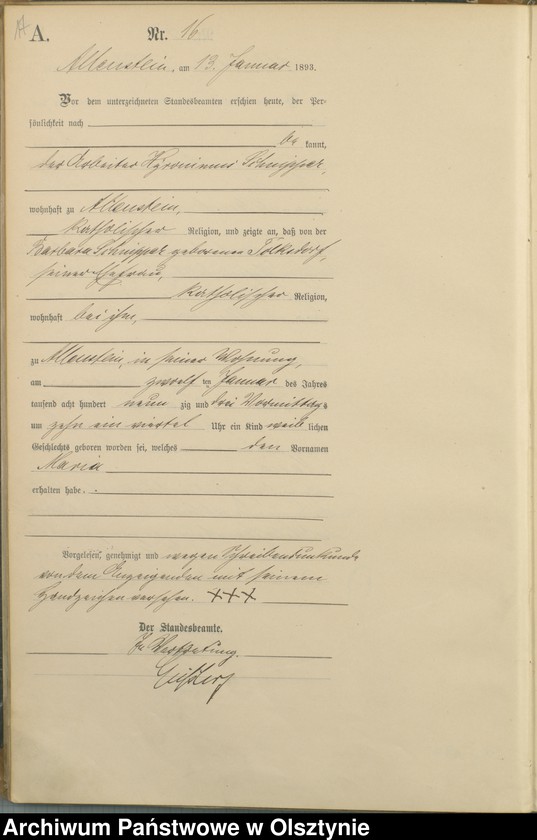 A.
Nr. 16
Allenstein, am 13. Januar 1893.
Vor dem unterzeichneten Standesbeamten erschien heute, der Per-
sönlichkeit nach
be kannt,
der Arbeiter Hyronimus Schnippar,
wohnhaft zu Allenstein,
katholischer Religion, und zeigte an, daß von der
Barbara Schnippar geborenen Tolksdorf,
seiner Ehefrau,
katholischer Religion,
wohnhaft bei ihm,
zu Allenstein, in seiner Wohnung,
am zwölften Januar des Jahres
tausend acht hundert neun zig und drei Vormittags
um zehn ein viertel Uhr ein Kind weib lichen
Geschlechts geboren worden sei, welches den Vornamen
Maria
erhalten habe.
Vorgelesen, genehmigt und wegen Schreibensunkunde
von dem Anzeigenden mit seinem
Handzeichen versehen. +++
Der Standesbeamte.
In Vertretung.
Archiwum Państwowe w Olsztynie